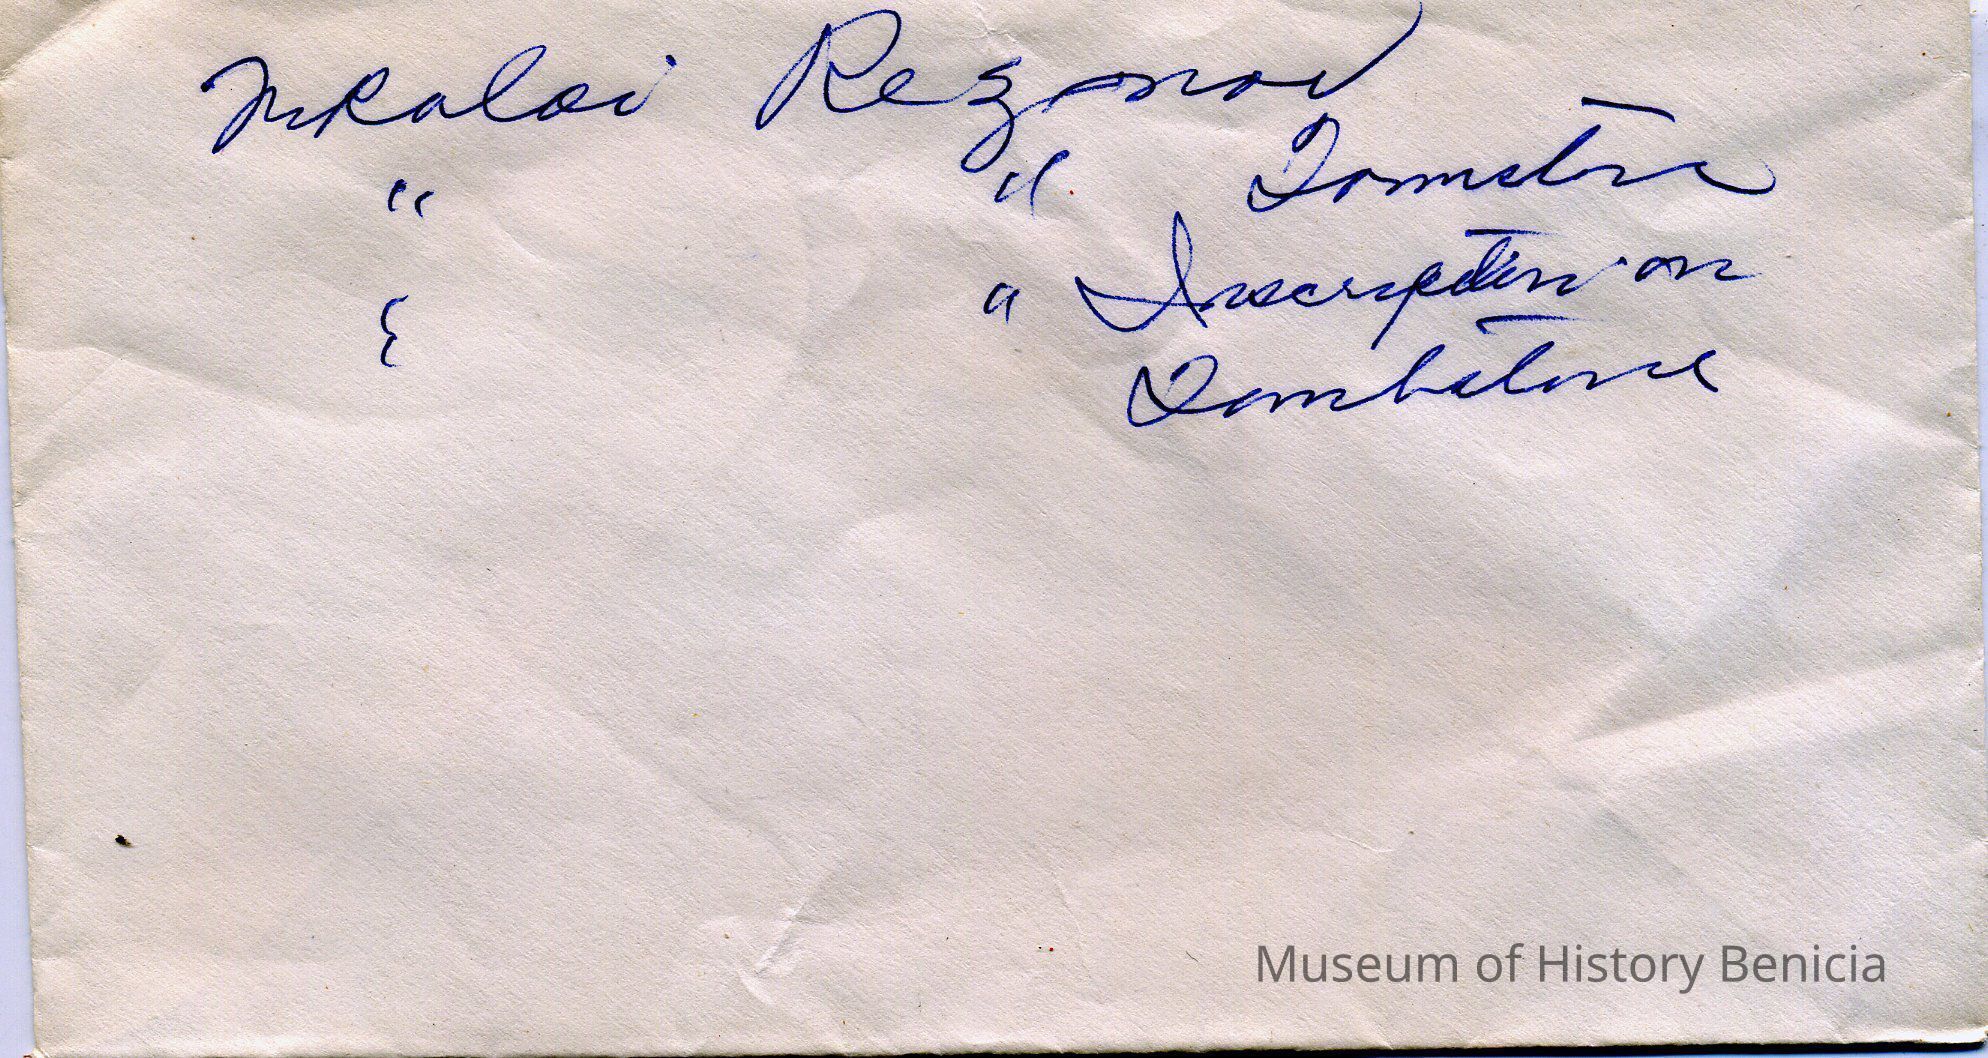 Nikolai Rezanov
" " Tomstone
& " Inscription on
Tombstone
Museum of History Benicia